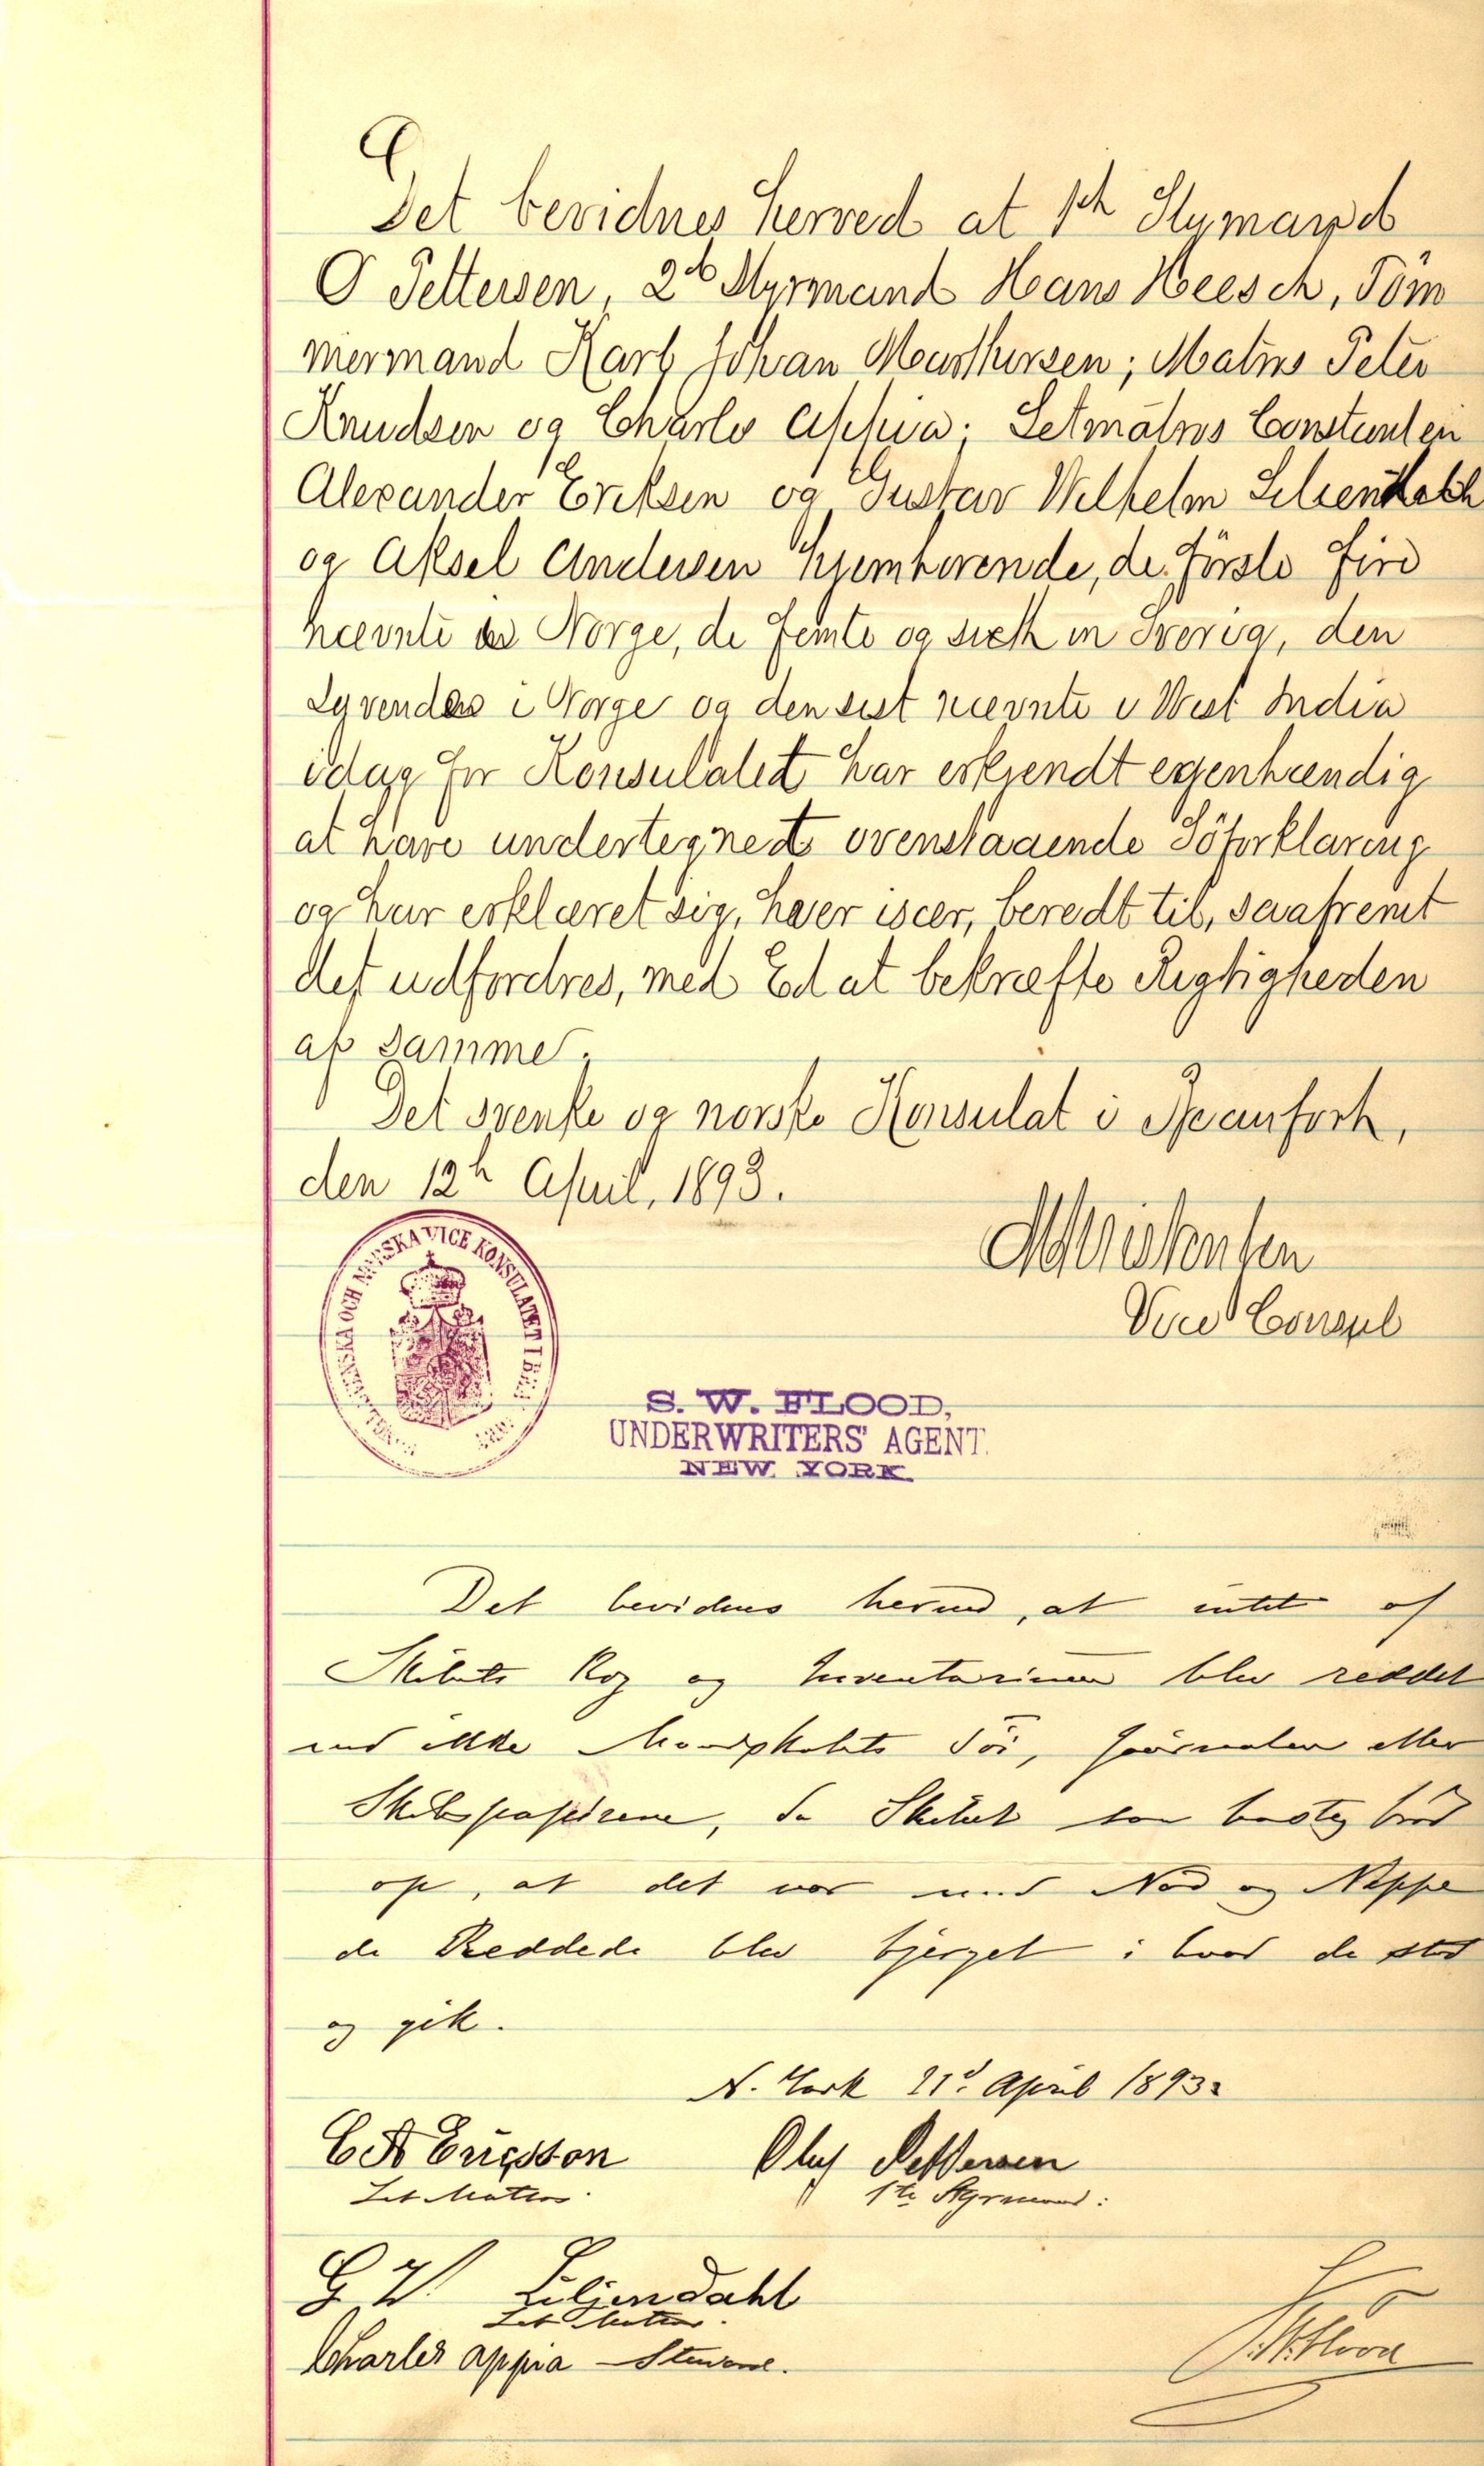 Det bevidnes herved at 1ch Stymand
O Pettersen, 2d Styrmand Hans Heesch, Töm
mermand Karl Johan Mourthersen; Matrns Peter
Knudsen og Charls Appia; Letmatrns Constanten
Alexander Eriksen og Gustav Wilhelm Lilien
og Aksel Andersen hjemhörende, de förste fire
nævnte i Norge, de femte og siette in Sverig, den
syvendes i Norge og den sist nævnte i West India
idag for Konsulatet har erkjendt egenhændig
at have undertegnedt ovenstaaende Söforklaring
og har erklæret sig, hver især, beredt til, saafremt
det udfordres, med Ed at bekræfte Rigtigheden
af samme.
Det svenske og norske Konsulat i Beaufort,
den 12h April, 1893.
Vice Consul
SVENSKA OCH NORSKA VICE KONSULATET I
S. W. FLOOD,
UNDERWRITERS' AGENT.
NEW YORK.
Det bevidnes herved, at intet af
Skibets Rog og Inventarium blev reddet
end ikke Mandskabets Töi, Journalen eller
Skibspapirene, da Skibet saa hastig bröd
op, at det var med Nød og Neppe
de Reddede blev bjerget i hvad de stod
og gik.
N. York 21d April 1893
C A Ericsson Oluf Pettersen
Let Matros. 1te Styrmand:
G W Liljendahl
Let Matros.
Charles appia Steward. S.W. Flood